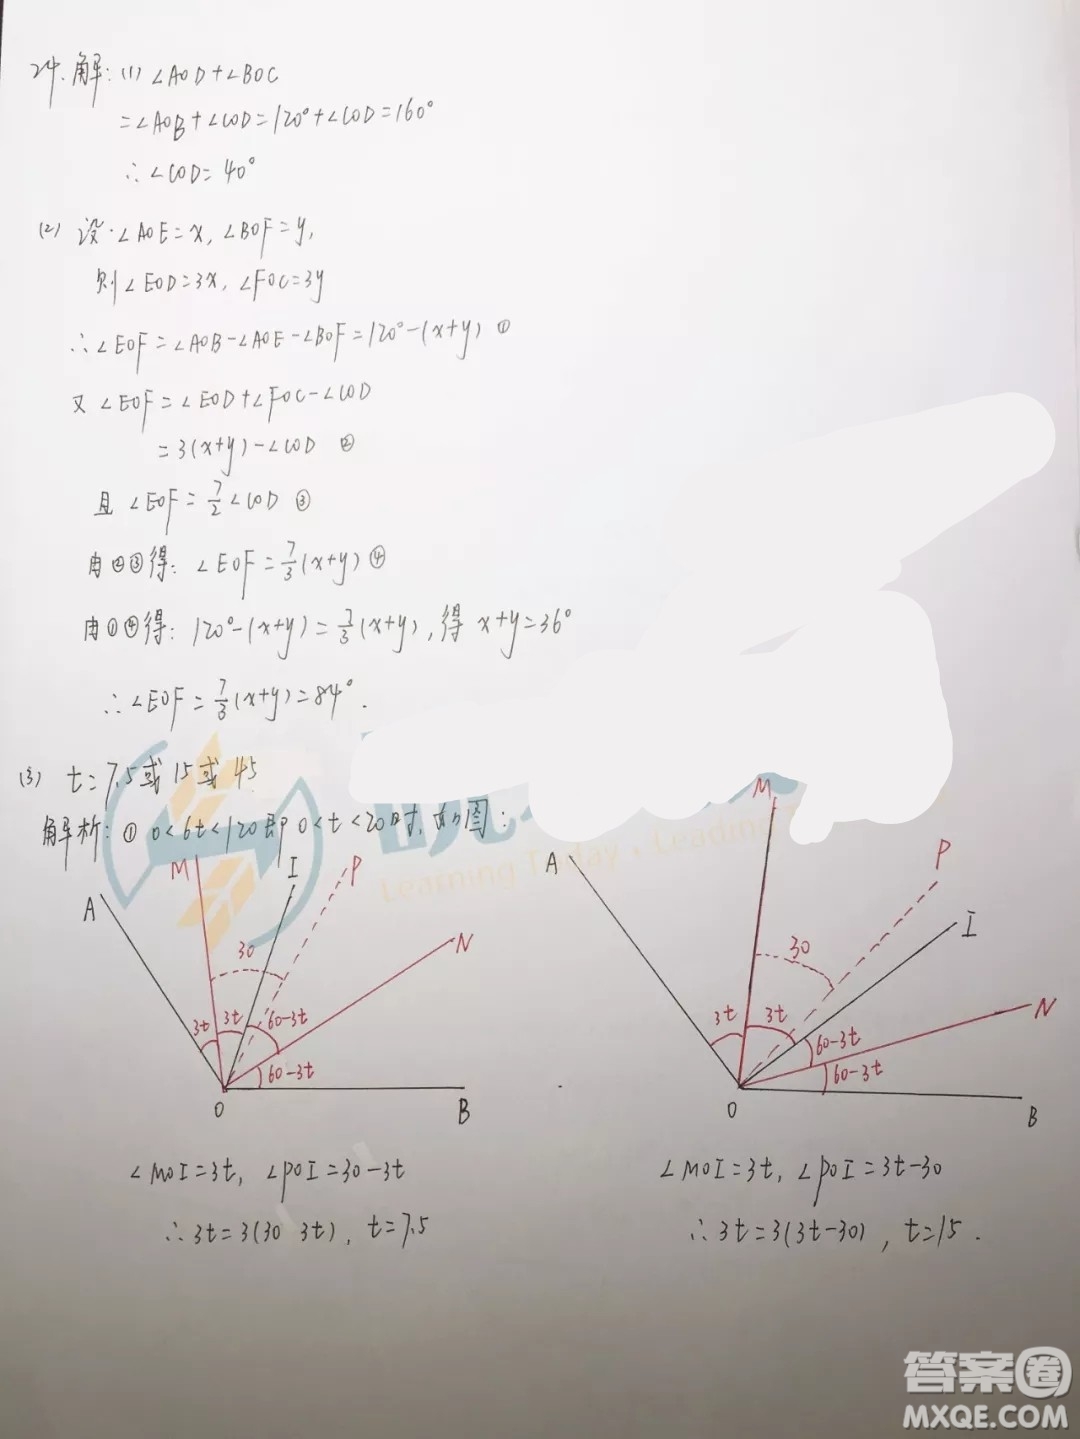 24. 解: (1) ∠AOD+∠BOC
=∠AOB+∠COD=120°+∠COD=160°
∴∠COD=40°
(2) 设·∠AOE=x, ∠BOF=y,
则∠EOD=3x, ∠FOC=3y
∴∠EOF=∠AOB-∠AOE-∠BOF=120°-(x+y) ①
又∠EOF=∠EOD+∠FOC-∠COD
=3(x+y)-∠COD ②
且∠EOF=7/2∠COD ③
由②③得: ∠EOF=7/3(x+y) ④
由①④得: 120°-(x+y)=7/3(x+y), 得 x+y=36°
∴∠EOF=7/3(x+y)=84°.
(3) t=7.5或15或45
解析: ① 0<6t<120即0<t<20时, 如图:
A M I P N
30
3t 3t 60-3t
60-3t
O B
A M P I N
30
3t 3t 60-3t
60-3t
O B
Learning Today, Leading
∠MOI=3t, ∠POI=30-3t
∴3t=3(30 3t), t=7.5
∠MOI=3t, ∠POI=3t-30
∴3t=3(3t-30), t=15.
答案圈
MXQE.COM